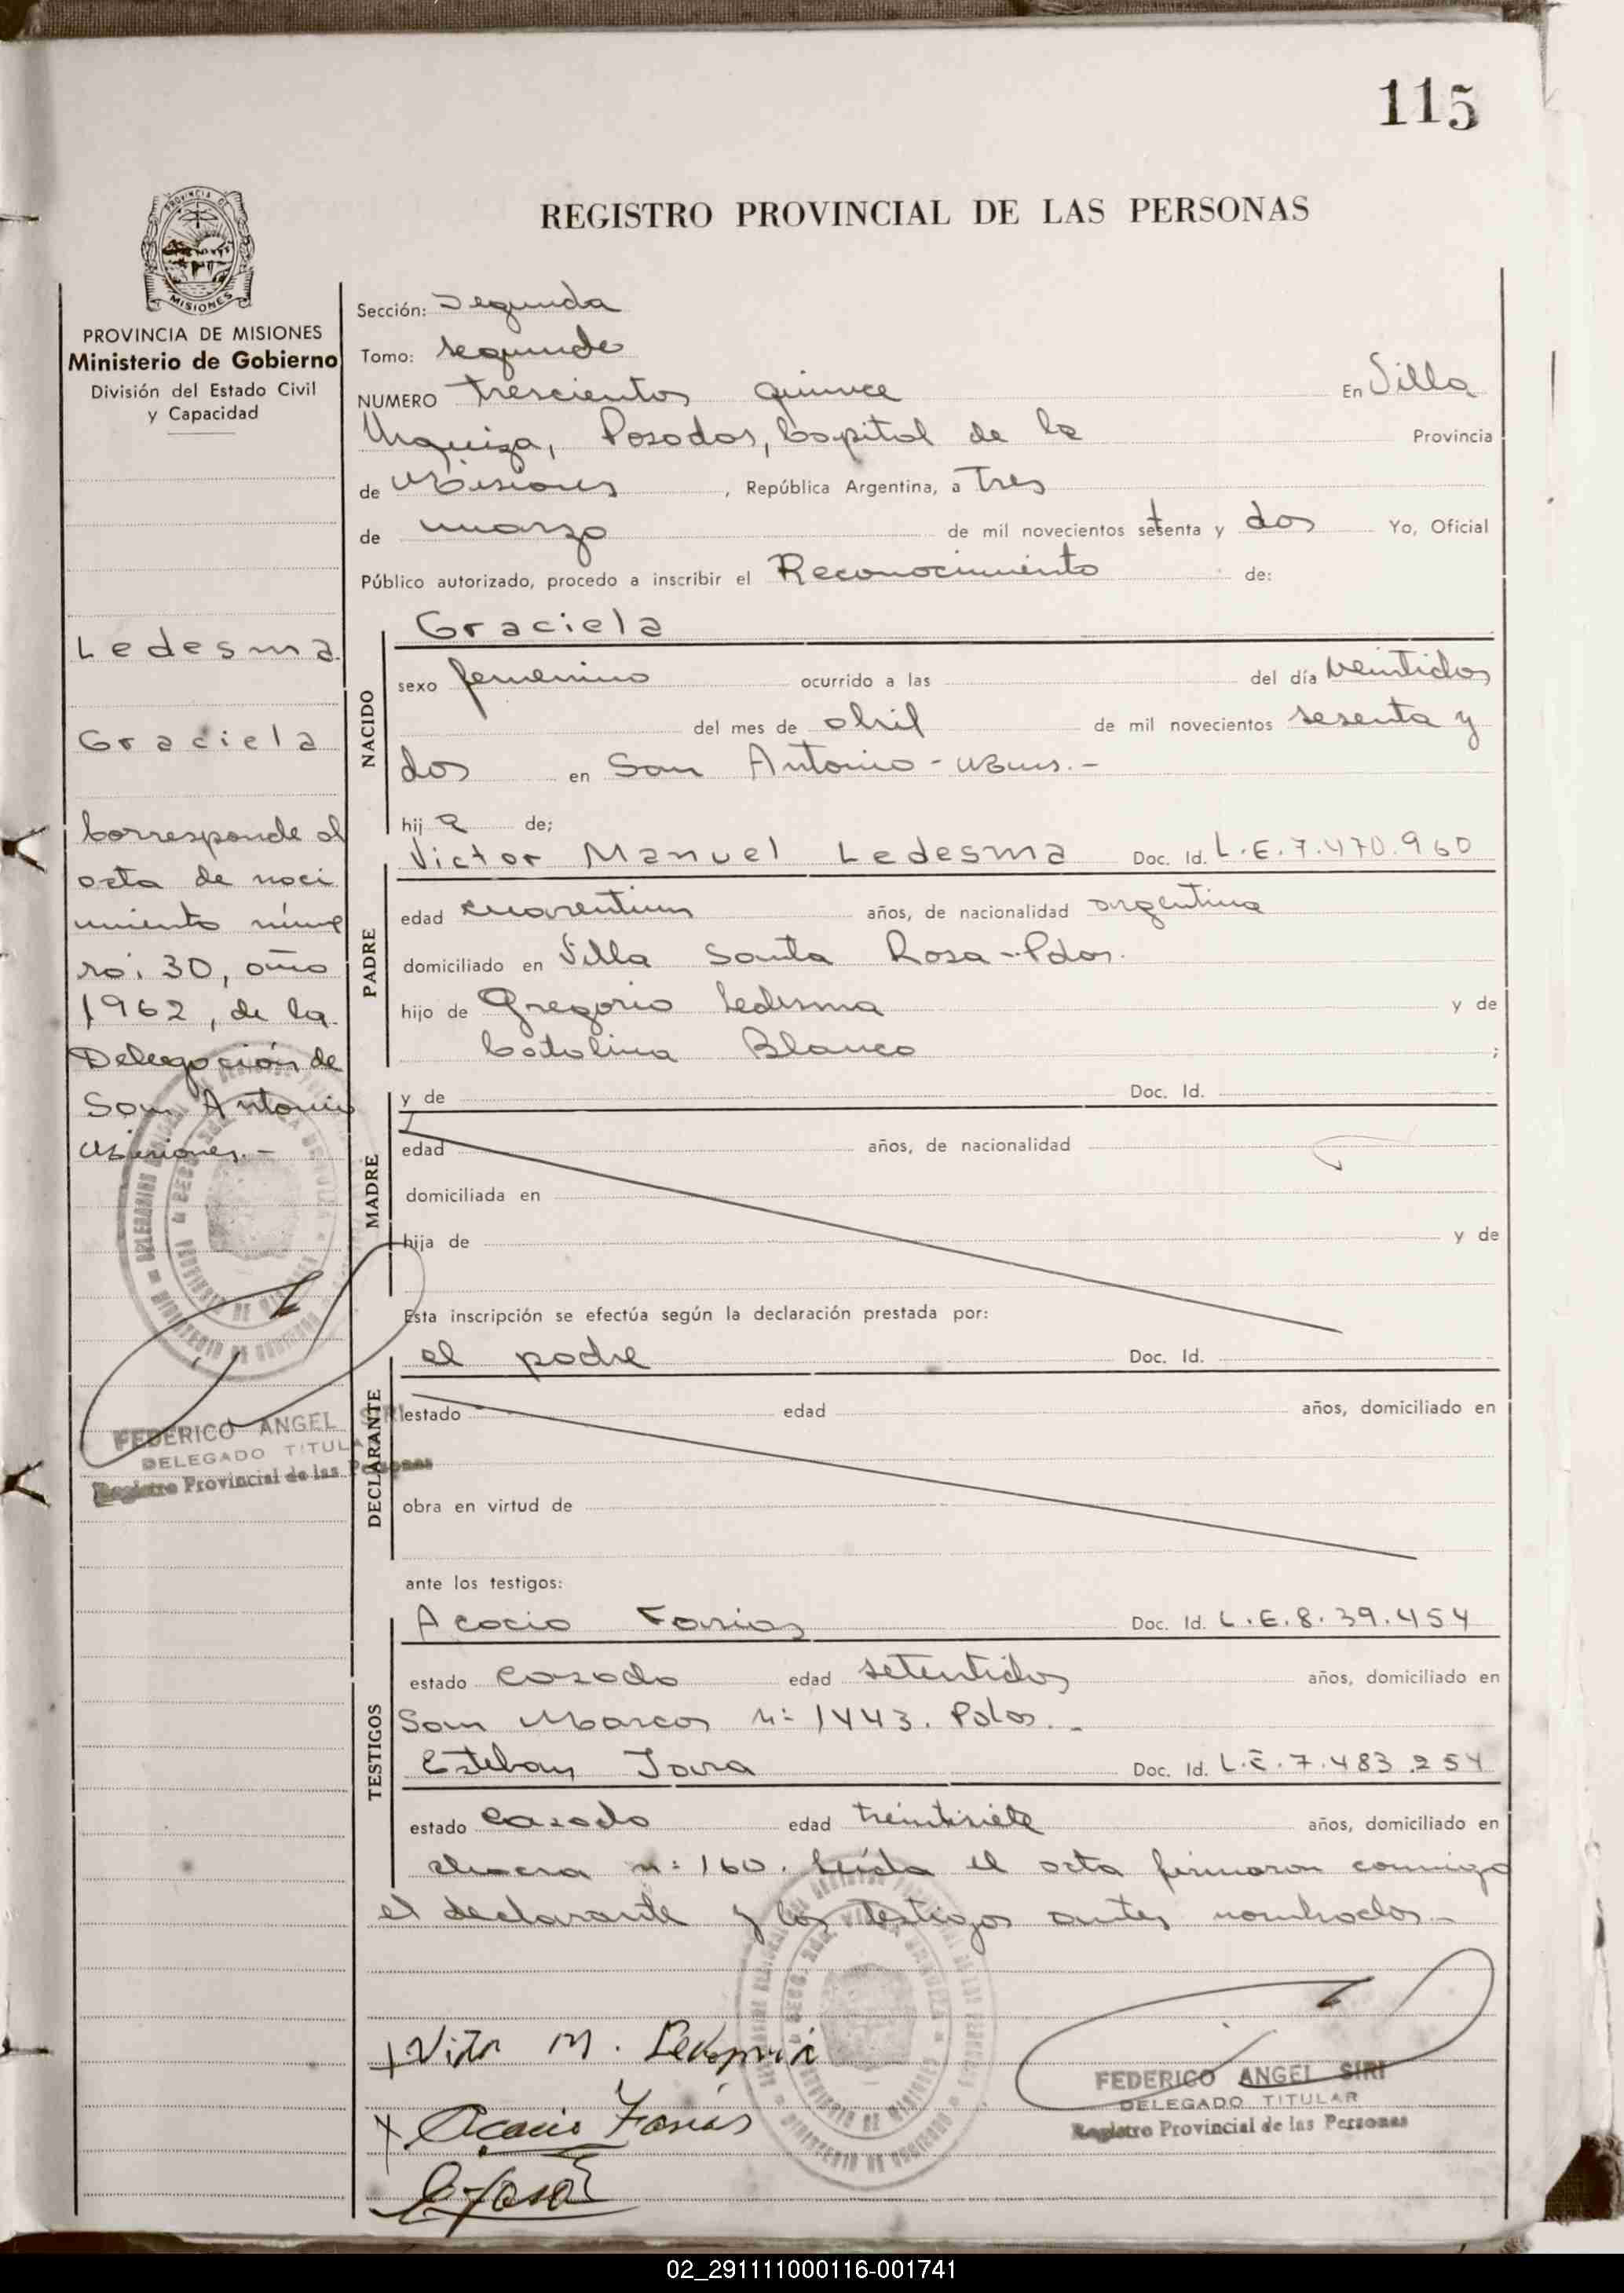 115
REGISTRO PROVINCIAL DE LAS PERSONAS
PROVINCIA DE MISIONES
PROVINCIA DE MISIONES
Ministerio de Gobierno
División del Estado Civil
y Capacidad
Ledesma
Graciela
Corresponde al
acta de naci
miento núme
ro: 30, año
1962, de la
Delegación de
San Antonio
Misiones.-
FEDERICO ANGEL SIRI
DELEGADO TITULAR
Registro Provincial de las Personas
Sección: Segunda
Tomo: segundo
NUMERO trescientos quince En Villa
Urquiza, Posadas, Capital de la Provincia
de Misiones, República Argentina, a Tres
de marzo de mil novecientos setenta y dos Yo, Oficial
Público autorizado, procedo a inscribir el Reconocimiento de:
NACIDO
Graciela
sexo femenino ocurrido a las del día veintidos
del mes de abril de mil novecientos sesenta y
dos en San Antonio - Mnes.-
hija de;
PADRE
Victor Manuel Ledesma Doc. Id. L.E.7.470.960
edad cuarentiun años, de nacionalidad argentina
domiciliado en Villa Santa Rosa-Pdas.
hijo de Gregorio Ledesma y de
Catalina Blanco ;
MADRE
y de Doc. Id.
edad años, de nacionalidad
domiciliada en
hija de y de
Esta inscripción se efectúa según la declaración prestada por:
DECLARANTE
el padre Doc. Id.
estado edad años, domiciliado en
obra en virtud de
ante los testigos:
TESTIGOS
Acacio Farias Doc. Id. L.E.8.39.454
estado casado edad setentidos años, domiciliado en
San Marcos n: 1443. Pdas.-
Esteban Doc. Id. L.E.7.483.254
estado casado edad treintisiete años, domiciliado en
chacra n: 160. Leída el acta firmaron conmigo
el declarante y los testigos antes nombrados.-
Victor M. Ledesma
Acacio Farias
FEDERICO ANGEL SIRI
DELEGADO TITULAR
Registro Provincial de las Personas
02_291111000116-001741